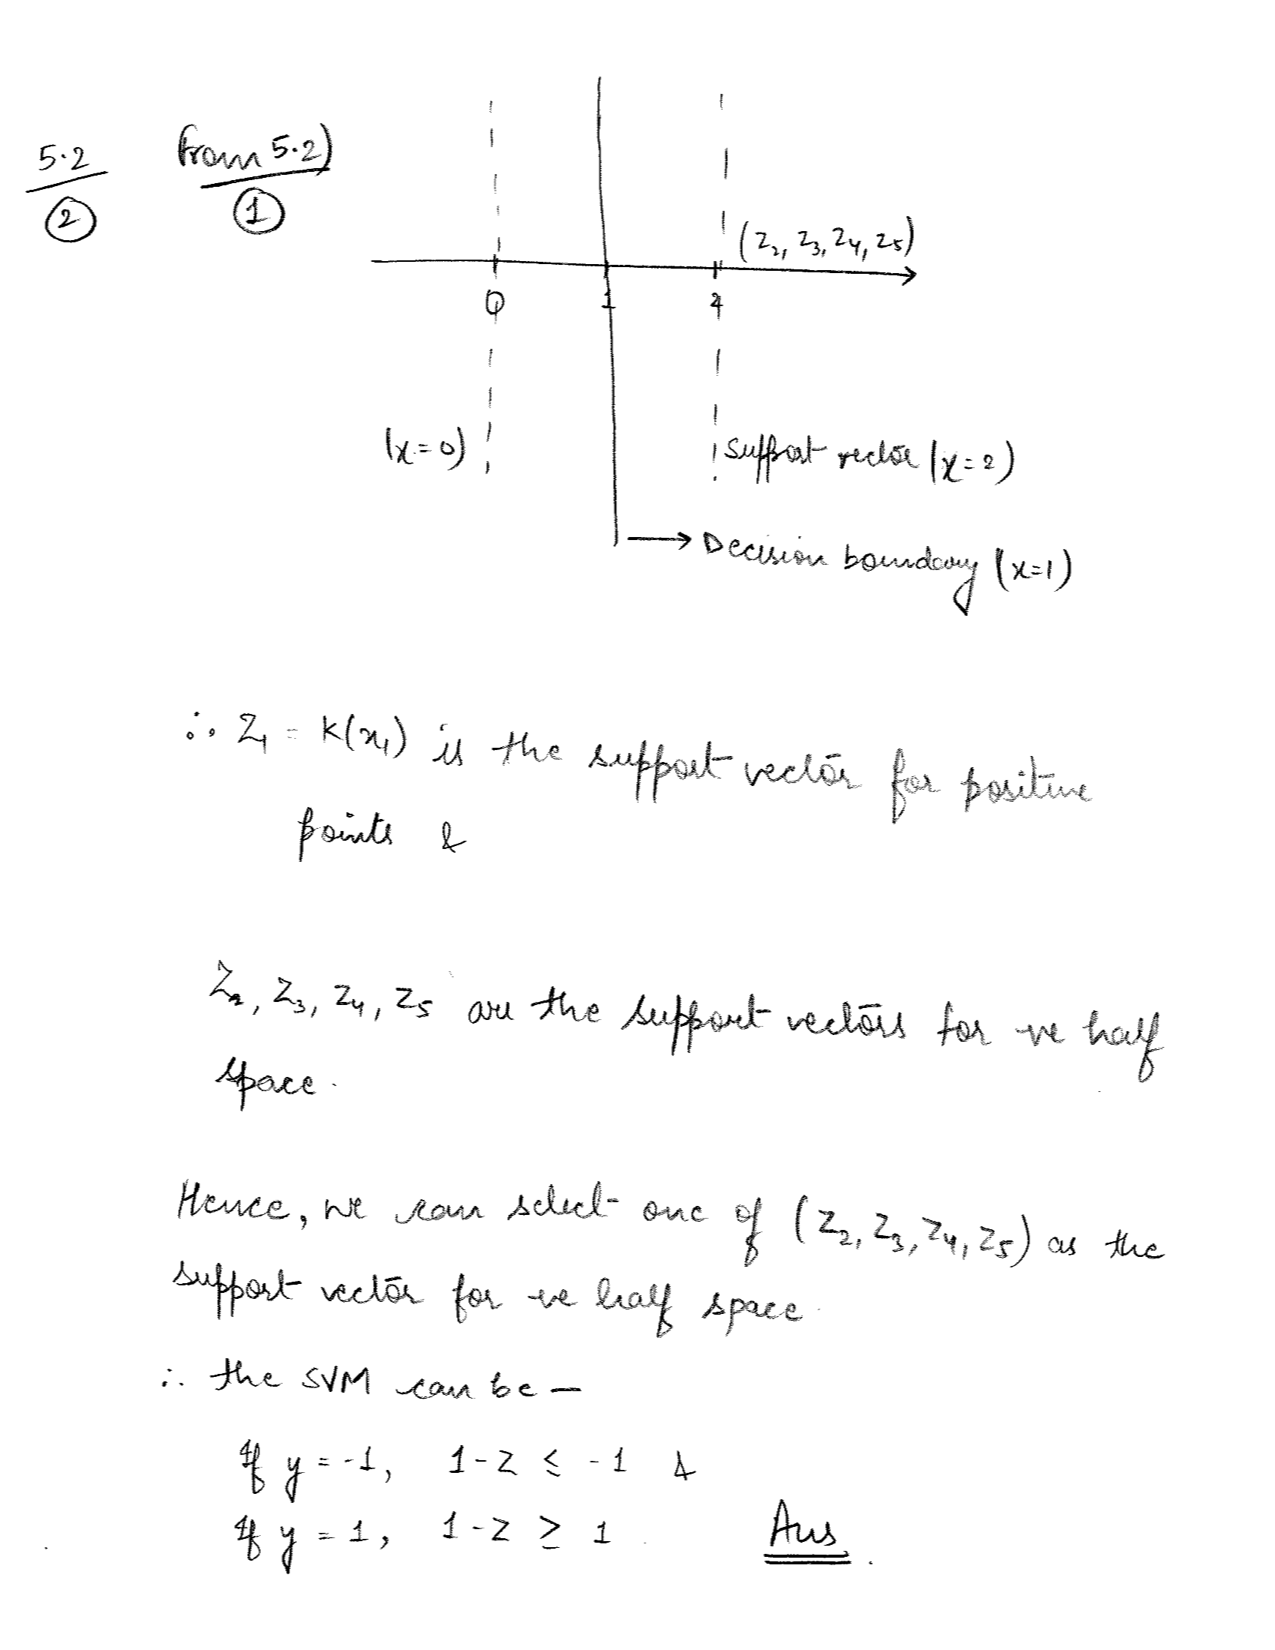 5.2 from 5.2)
② ①
(Z₂, Z₃, Z₄, Z₅)
0 1 2
(x=0)
Support vector (x=2)
→ Decision boundary (x=1)
∴ Z₁ = K(x₁) is the support vector for positive
points &
Z₂, Z₃, Z₄, Z₅ are the support vectors for -ve half
space.
Hence, we can select one of (Z₂, Z₃, Z₄, Z₅) as the
support vector for -ve half space.
∴ the SVM can be —
If y = -1, 1-Z ≤ -1 &
If y = 1, 1-Z ≥ 1
Ans.